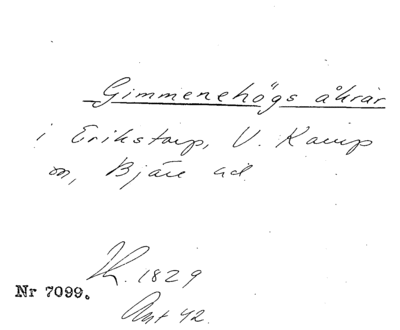 Gimmenehögs åkrar
i Erikstorp, V. Karup
sn, Bjäre hd
H. 1829
Nr 7099.
Ant 42.